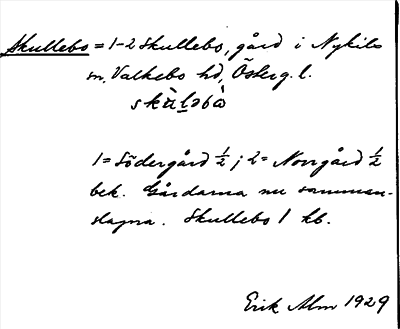 Skullebo = 1-2 Skullebo, gård i Nykils
sn, Valkebo hd, Österg. l.
skùlǝbò
1 = Södergård ½; 2 = Norrgård ½
bek. Gårdarna nu samman-
slagna. Skullebo 1 kb.
Erik Alm 1929